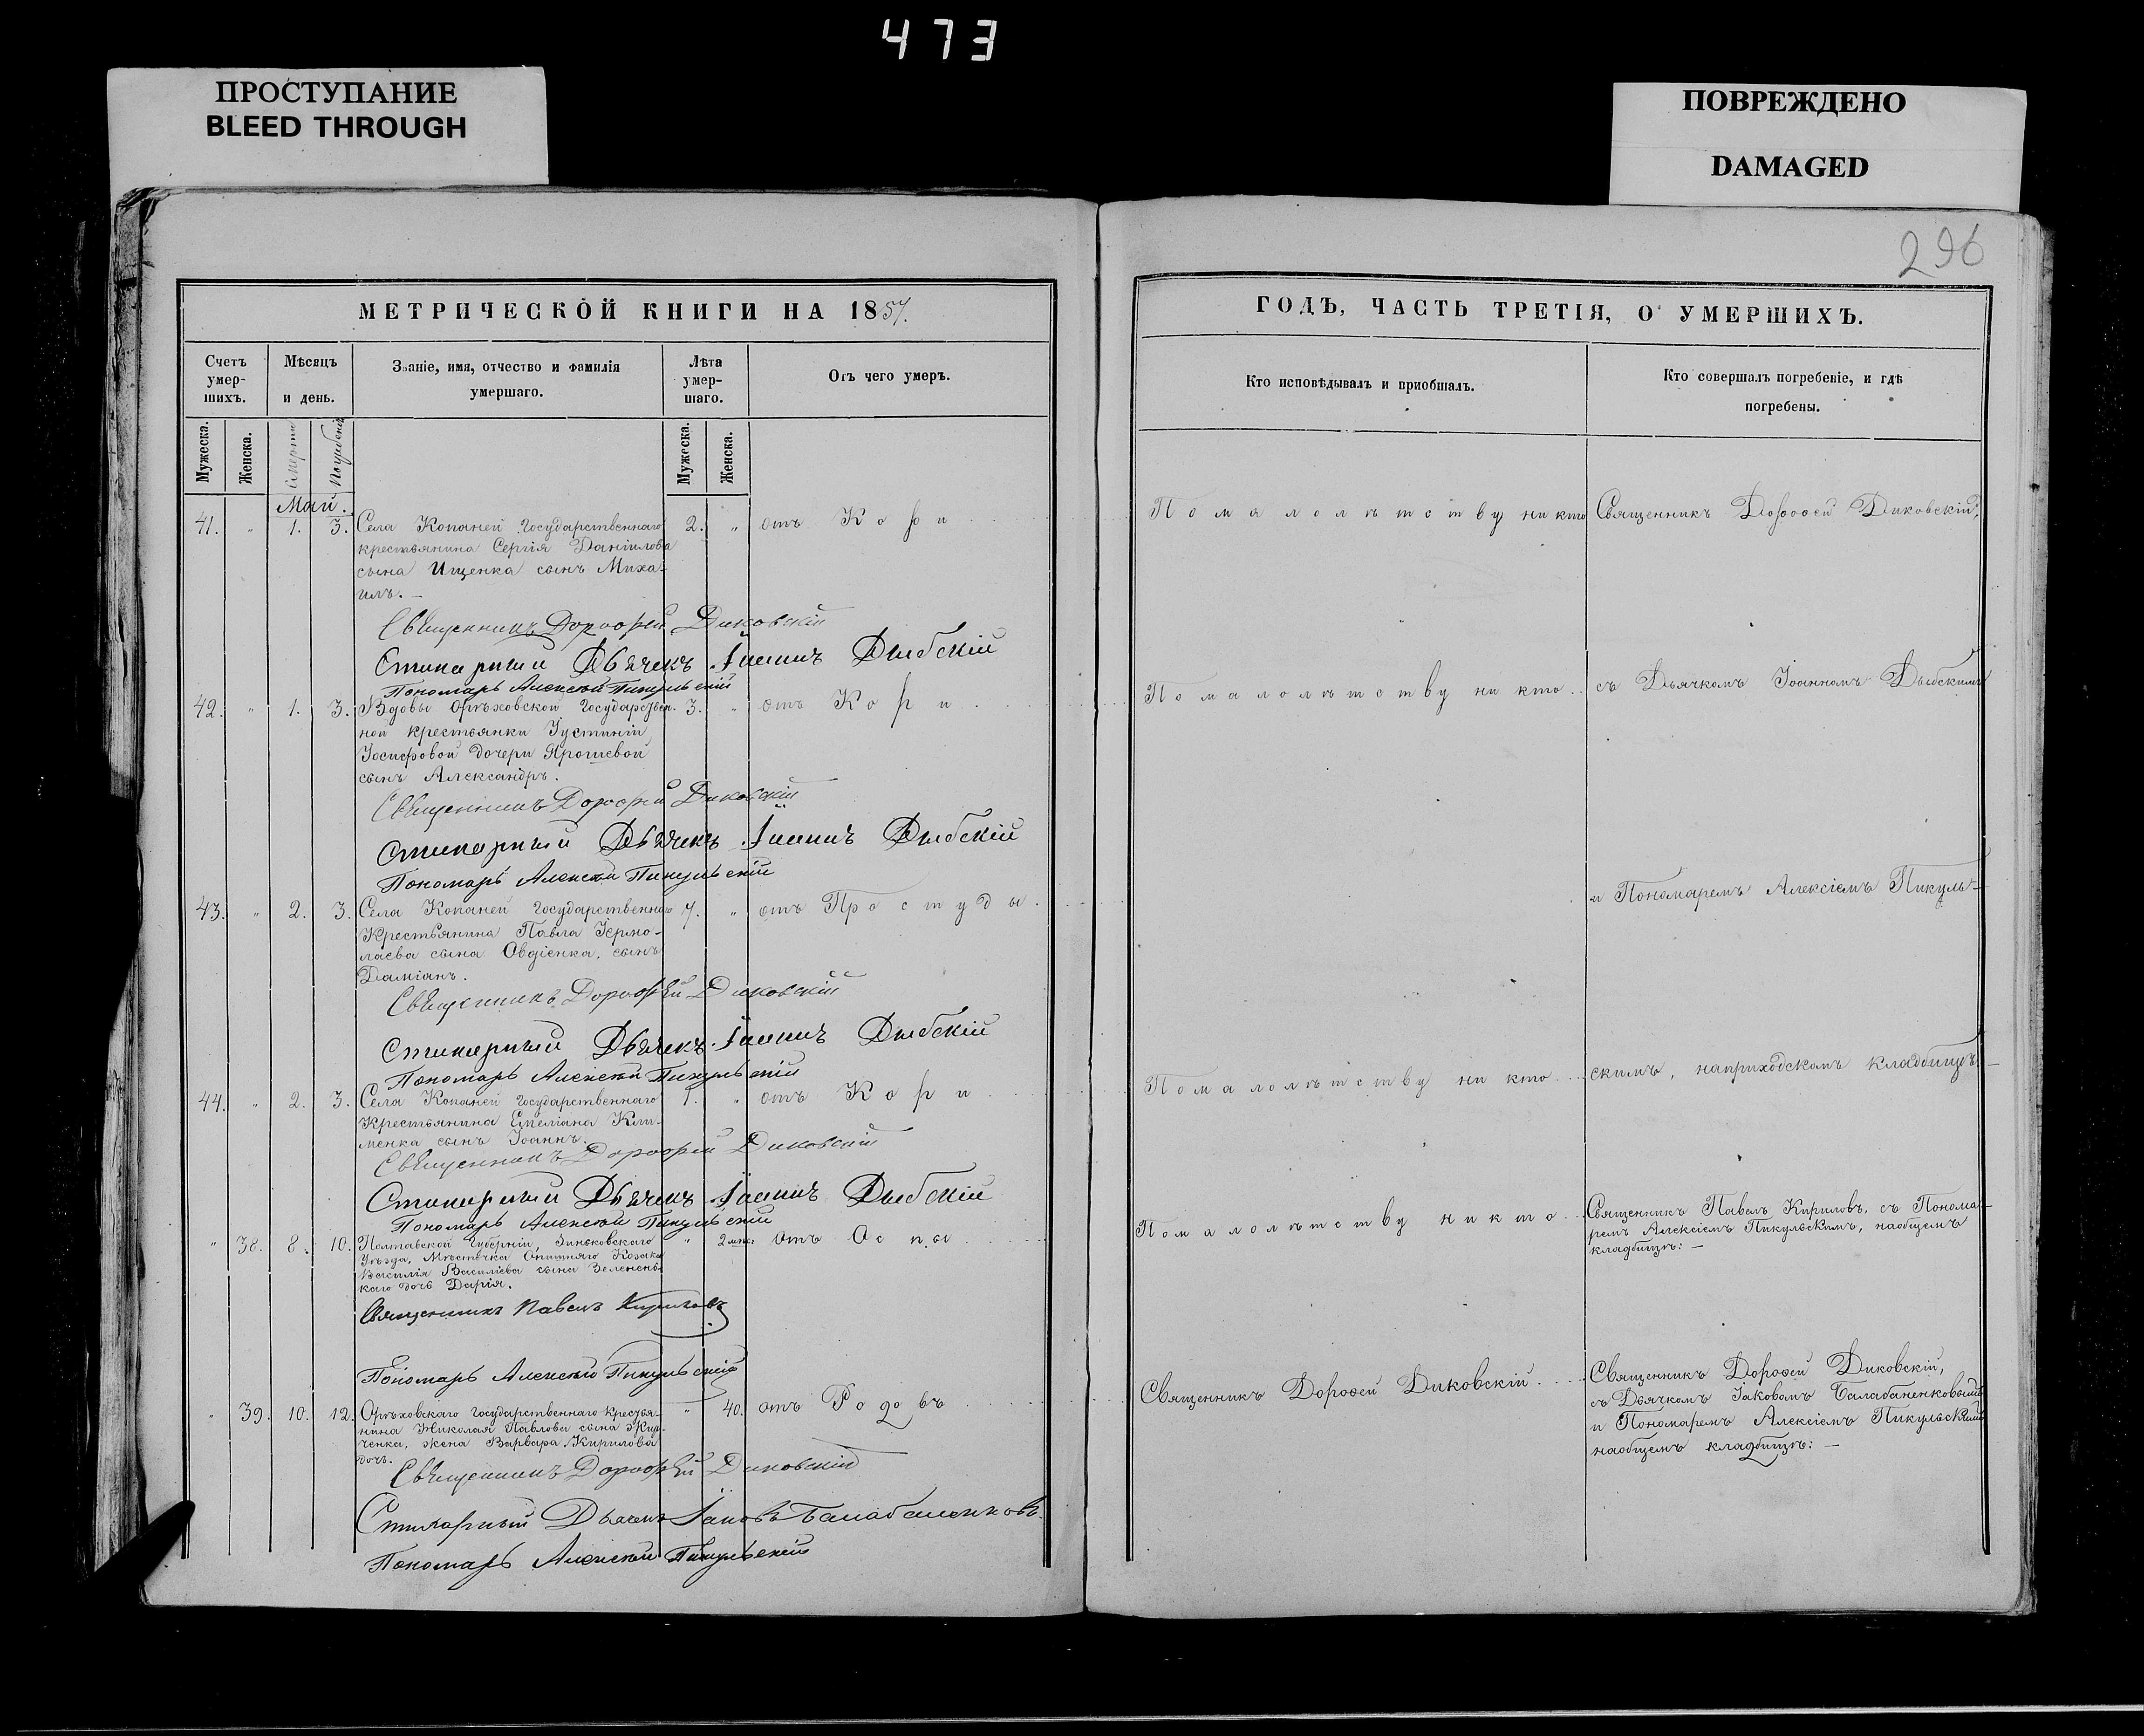 473
ПРОСТУПАНИЕ
BLEED THROUGH
ПОВРЕЖДЕНО
DAMAGED
296
МЕТРИЧЕСКОЙ КНИГИ НА 1857.
Счетъ умер-шихъ.
Мѣсяцъ и день.
Званіе, имя, отчество и фамилія умершаго.
Лѣта умер-шаго.
Отъ чего умеръ.
Мужеска.
Женска.
Смерти
Погребенія
Мужеска.
Женска.
Май.
41. " 1. 3. Села Копаней Государственнаго 2. " отъ Кори
крестьянина Сергія Даніилова
сына Ищенка сынъ Миха-
илъ. —
Священникъ Дорофей Диковскій
Стихарный Дьячекъ Іоаннъ Дыбскій
Пономарь Алексѣй Пикульскій
42. " 1. 3. Вдовы Орѣховской Государствен- 3. " отъ Кори
ной крестьянки Іустиніи
Іосифовой дочери Ярошевой
сынъ Александръ.
Священникъ Дорофей Диковскій
Стихарный Дьячекъ Іоаннъ Дыбскій
Пономарь Алексѣй Пикульскій
43. " 2. 3. Села Копаней Государственнаго 7. " отъ Простуды.
Крестьянина Павла Іермо-
лаева сына Овдіенка, сынъ
Даміанъ.
Священникъ Дорофѣй Диковскій
Стихарный Дьячекъ Іоаннъ Дыбскій
Пономарь Алексѣй Пикульскій
44. " 2. 3. Села Копаней Государственнаго 1. " отъ Кори
Крестьянина Емеліана Кли-
менка сынъ Іоаннъ.
Священникъ Дорофей Диковскій
Стихарный Дьячекъ Іоаннъ Дыбскій
Пономарь Алексѣй Пикульскій
" 38. 8. 10. Полтавской Губерніи, Зиньковскаго " 2 мѣс: отъ Оспы
Уѣзда, Мѣстечка Опошняго Козака
Василія Василіева сына Зеленень-
каго дочь Дарія.
Священникъ Павелъ Кириловъ
Пономарь Алексѣй Пикульскій
" 39. 10. 12. Орѣховскаго Государственнаго Крестья- " 40. отъ Родовъ
нина Николая Павлова сына
ченка, жена Варвара Кирилова
дочь.
Священникъ Дорофѣй Диковскій
Стихарный Дьячекъ Іаковъ Балабаненковъ.
Пономарь Алексѣй Пикульскій
ГОДЪ, ЧАСТЬ ТРЕТІЯ, О УМЕРШИХЪ.
Кто исповѣдывалъ и пріобщалъ.
Кто совершалъ погребеніе, и гдѣ погребены.
По малолѣтству ни кто Священникъ Дорооей Диковскій,
По малолѣтству ни кто съ Дьячкомъ Іоанномъ Дыбскимъ
и Пономаремъ Алексіемъ Пикуль-
По малолѣтству ни кто скимъ, наприходскомъ кладбищѣ. —
По малолѣтству никто Священникъ Павелъ Кириловъ, съ Понома-
ремъ Алексіемъ Пикульскимъ, наобщемъ
кладбищѣ: —
Священникъ Дороѳей Диковскій. Священникъ Дороѳей Диковскій,
съ Дьячкомъ Іаковомъ Балабаненковымъ
и Пономаремъ Алексіемъ Пикульскимъ
наобщемъ кладбищѣ: —